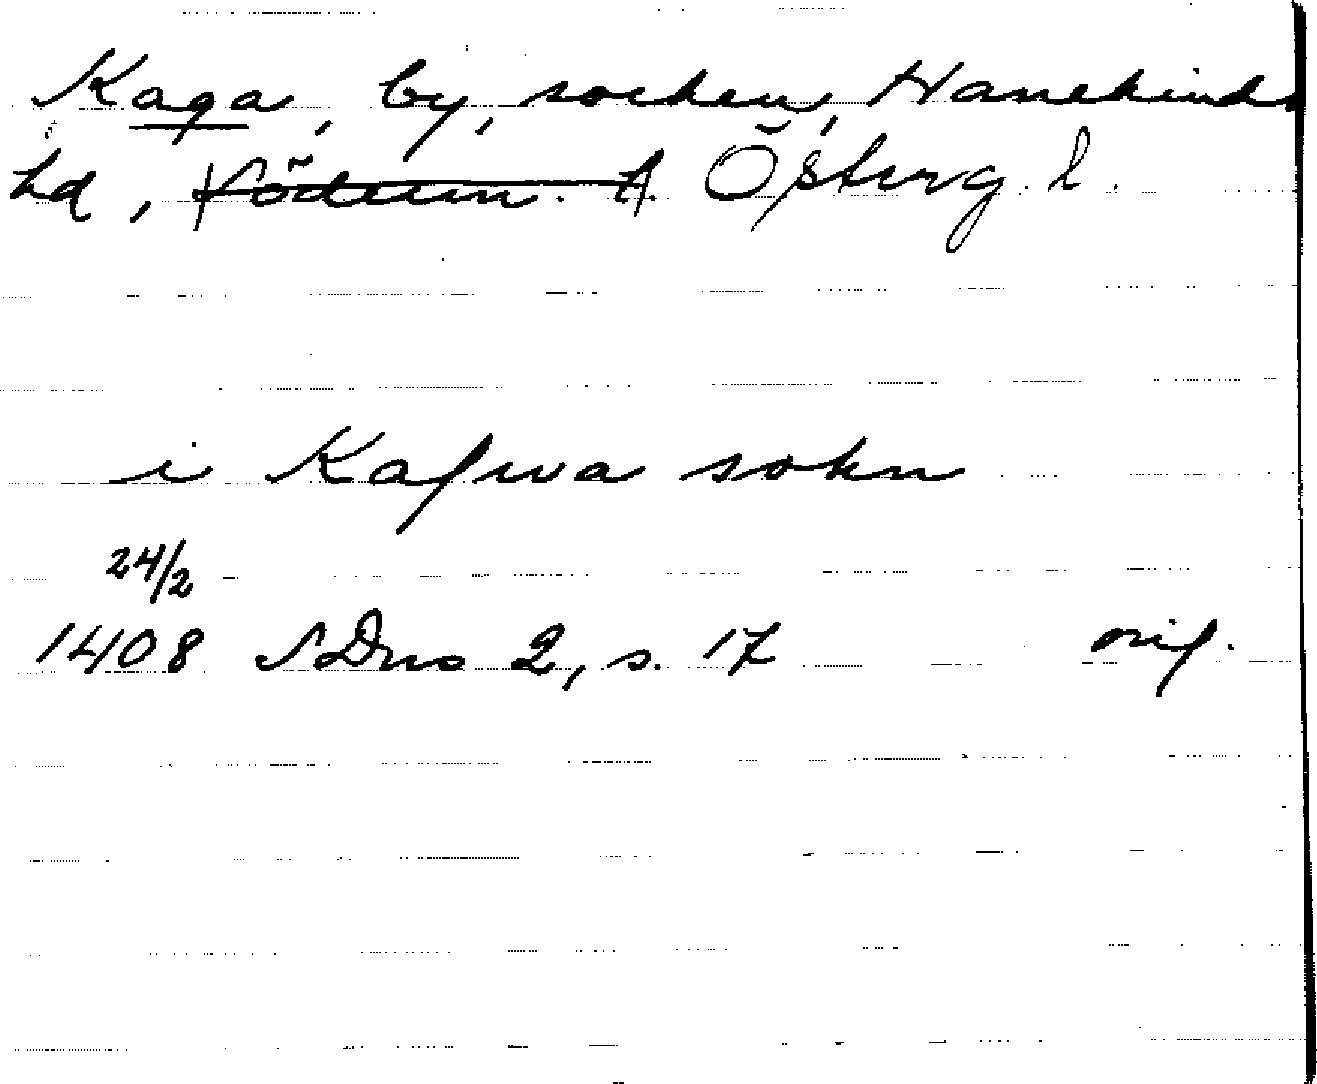 Kaga, by, socken, Hanekinds
hd, Söderm. l. Österg. l.
i Kafwa sokn
24/2
1408 SDns 2, s. 17 orig.